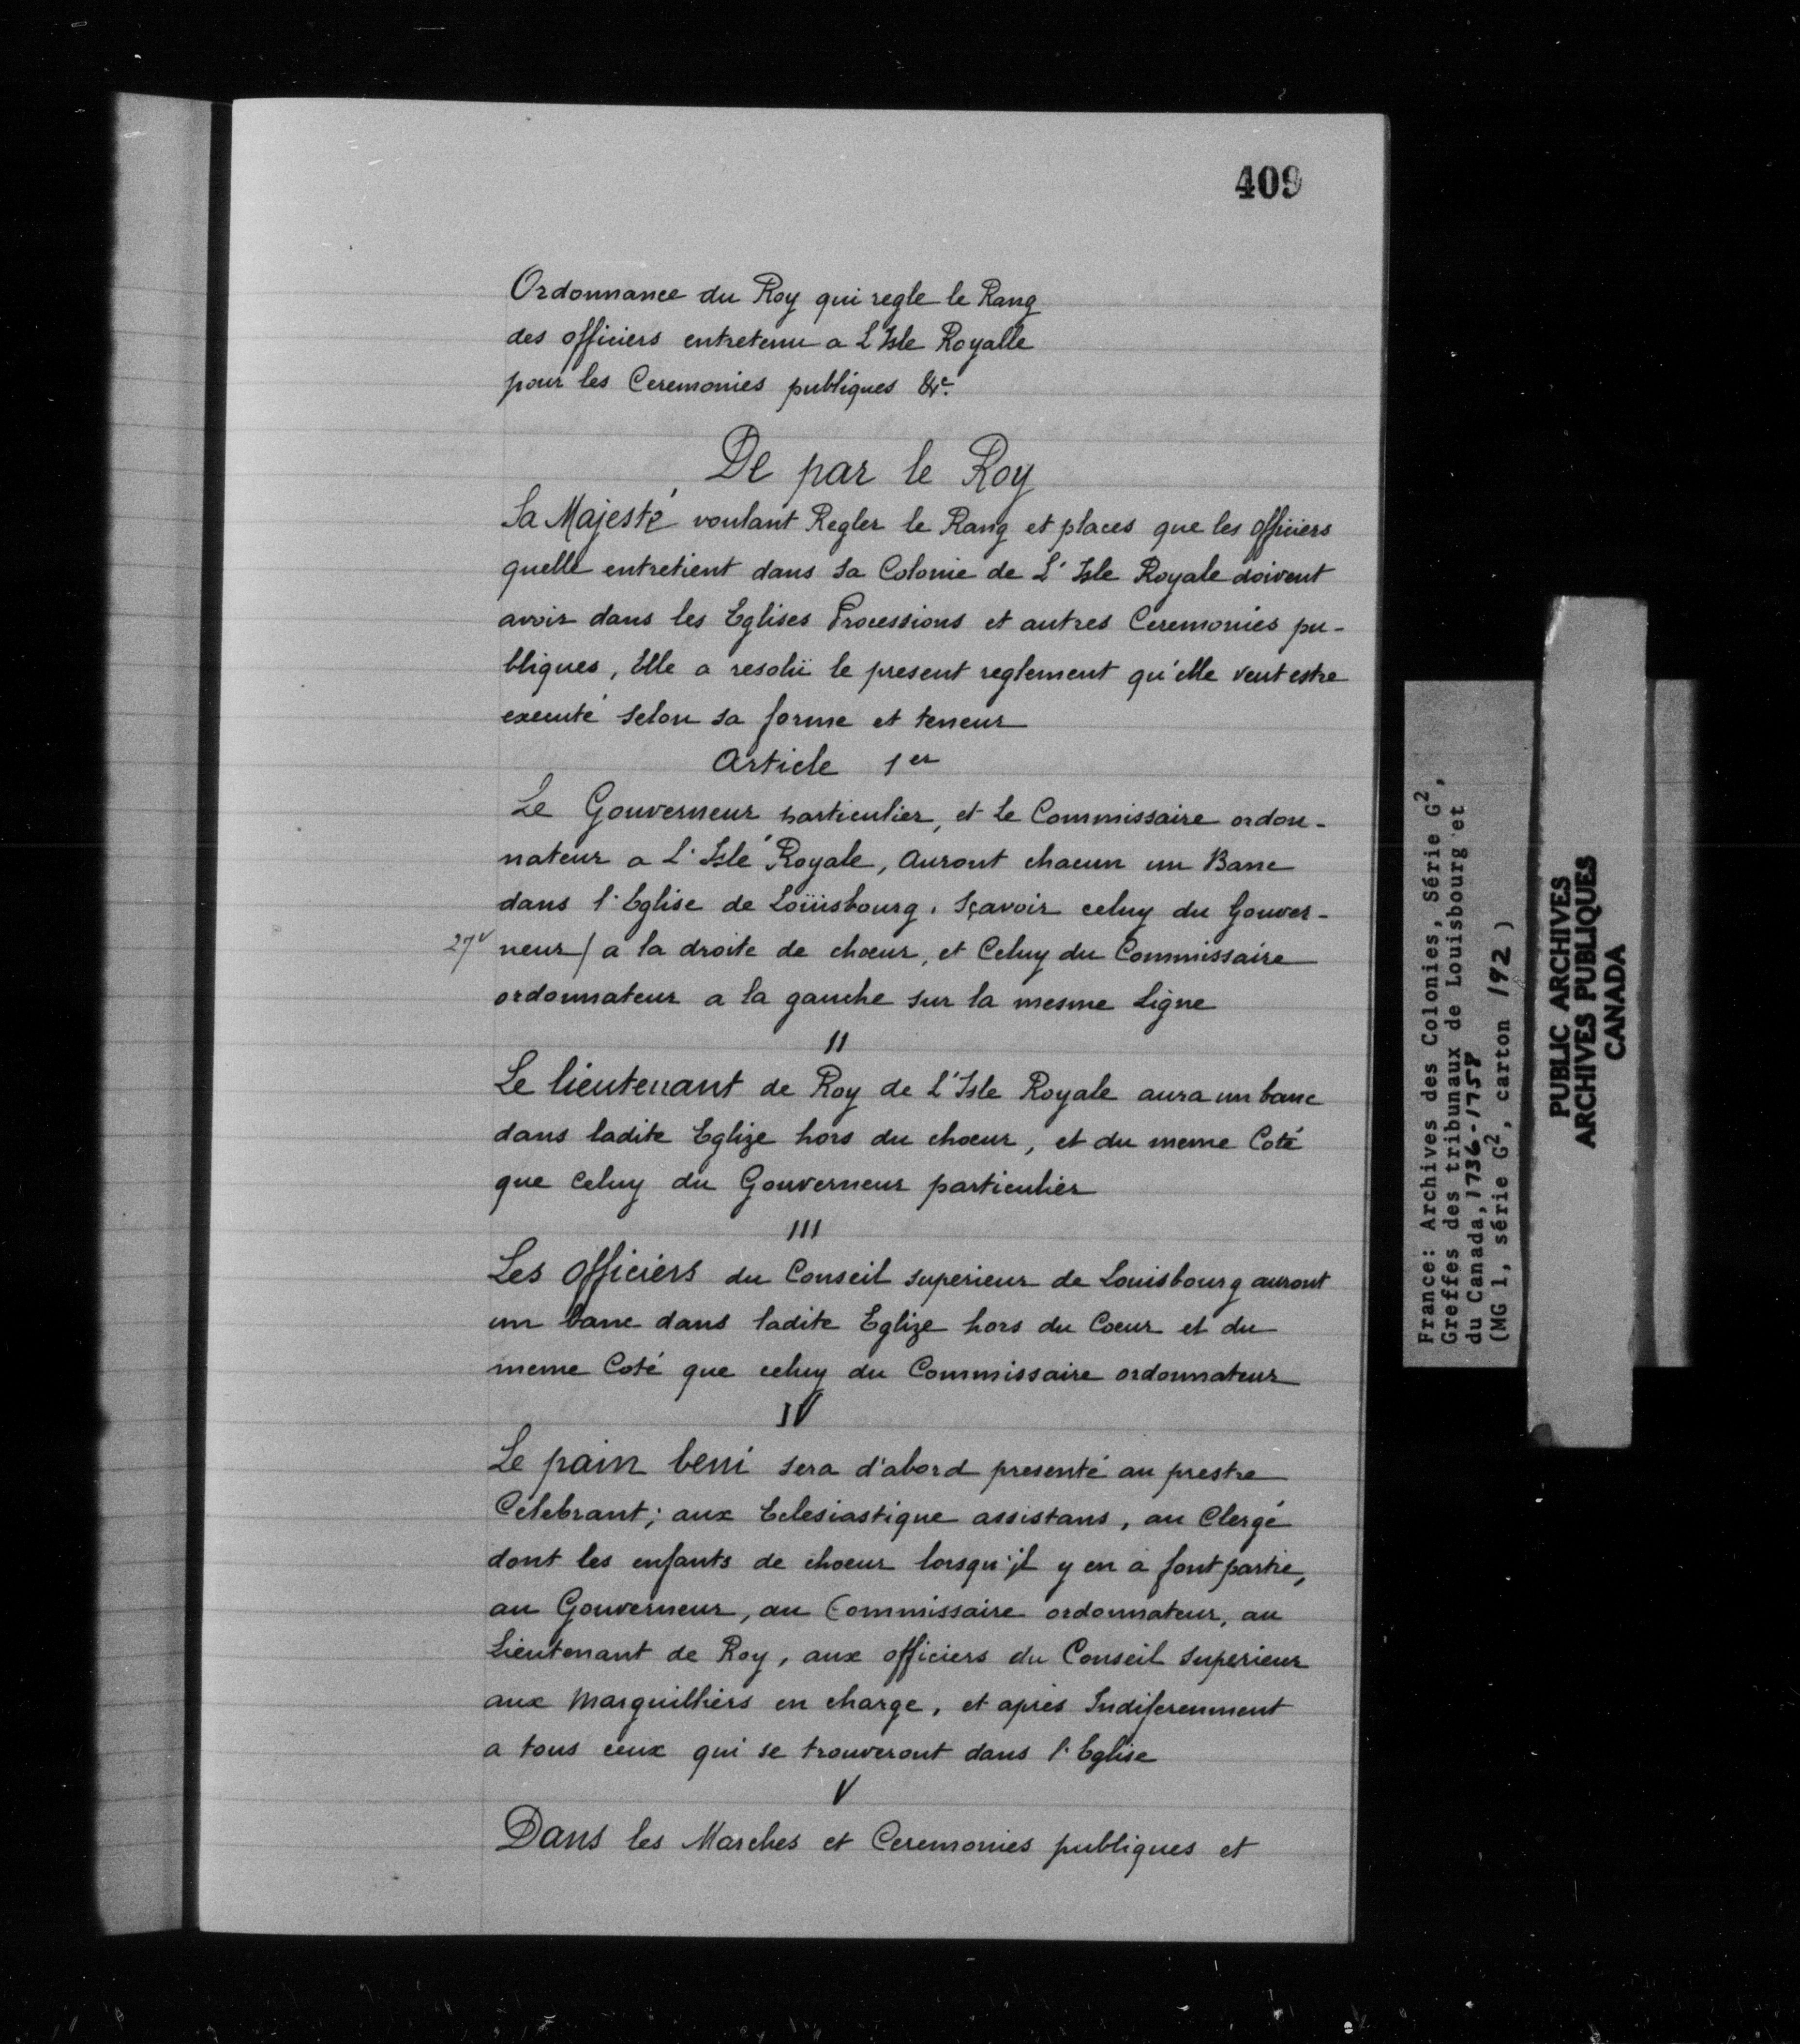 409
Ordonnance du Roy qui regle le Rang
des officiers entretenu a L'Isle Royalle
pour les Ceremonies publiques &c.
De par le Roy
Sa Majesté voulant Regler le Rang et places que les officiers
quelle entretient dans sa Colonie de L'Isle Royale doivent
avoir dans les Eglises Processions et autres Ceremonies pu-
bliques, Elle a resolü le present reglement qu'elle veut estre
executé selon sa forme et teneur
Article 1er
Le Gouverneur particulier, et le Commissaire ordon-
nateur a L'Isle Royale, auront chacun un Banc
dans l'Eglise de Loüisbourg, sçavoir celuy du Gouver-
27v neur / a la droite de choeur, et Celuy du Commissaire
ordonnateur a la gauche sur la mesme Ligne
II
Le lieutenant de Roy de L'Isle Royale aura un banc
dans ladite Eglize hors du choeur, et du meme Coté
que Celuy du Gouverneur particulier
III
Les officiers du Conseil superieur de Louisbourg auront
un banc dans ladite Eglize hors du Coeur et du
meme Coté que celuy du Commissaire ordonnateur
IV
Le pain beni sera d'abord presenté au prestre
Célebrant; aux Eclesiastique assistans, au Clergé
dont les enfants de choeur lorsqu'jl y en a font partie,
au Gouverneur, au Commissaire ordonnateur, au
Lieutenant de Roy, aux officiers du Conseil Superieur
aux Marguilliers en charge, et après Indiferenment
a tous ceux qui se trouveront dans l'Eglise
V
Dans les Marches et Ceremonies publiques et
France: Archives des Colonies, Série G2,
Greffes des tribunaux de Louisbourg et
du Canada, 1736-1758
(MG 1, série G2, carton 192)
PUBLIC ARCHIVES
ARCHIVES PUBLIQUES
CANADA